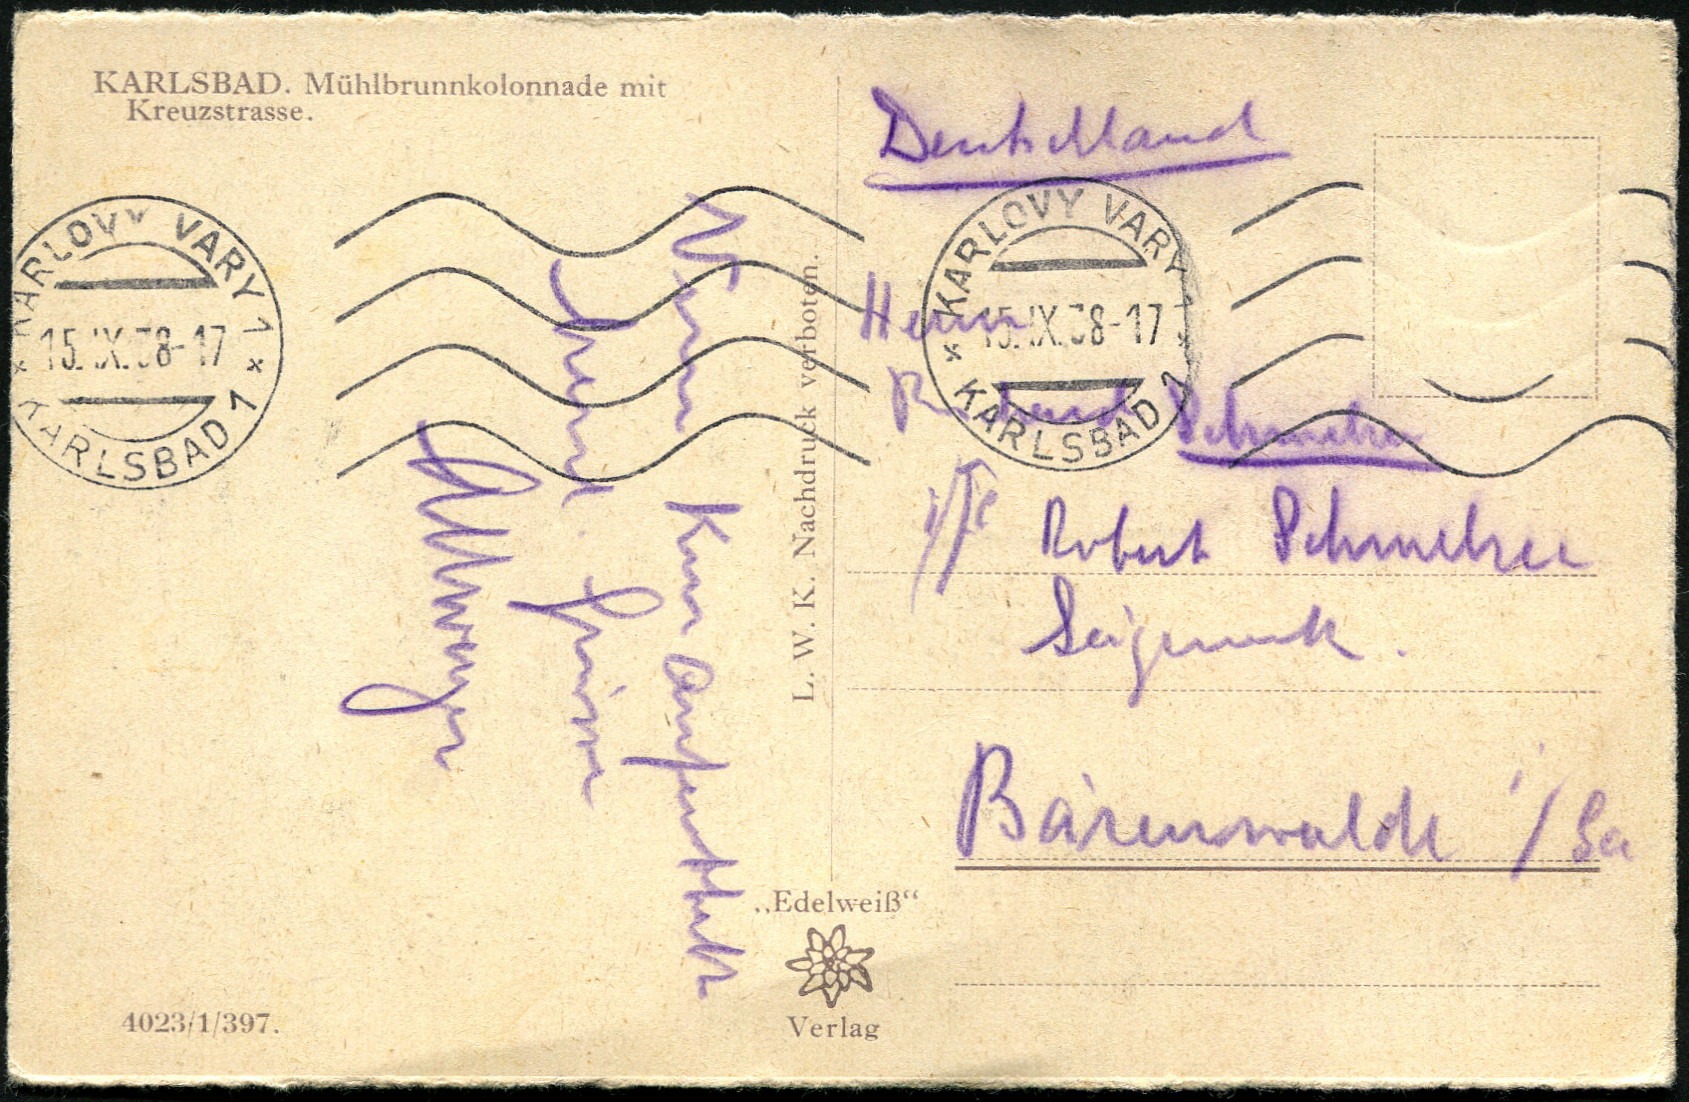 KARLSBAD. Mühlbrunnkolonnade mit
Kreuzstrasse.
KARLOVY VARY 1
15.IX.38-17
KARLSBAD 1
Vom
Kuraufenthalt
Grüsse
L. W. K. Nachdruck verboten.
„Edelweiß“
Verlag
4023/1/397.
Deutschland
KARLOVY VARY 1
15.IX.38-17
KARLSBAD 1
Herrn
Schmelzer
i/Fa Robert Schmelzer
Bärenwalde i/Sa